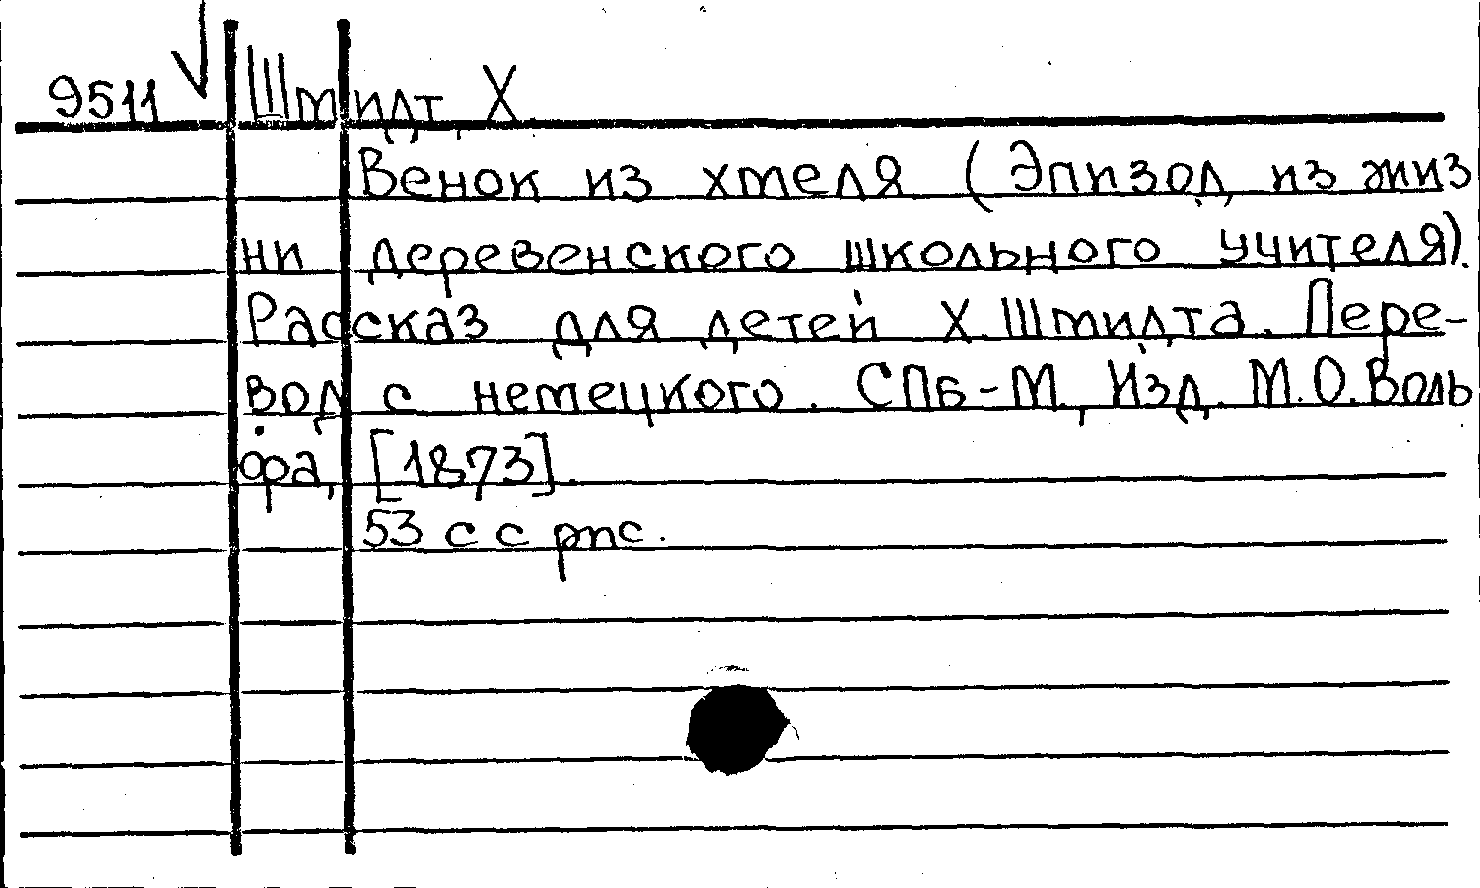 9511 Штидт, Х.
Венок из хмеля (Эпизод из жиз
ни деревенского школьного учителя).
Рассказ для детей Х. Шмидта. Пере-
вод с немецкого. СПб-М., Изд. М.О.Воль
фа, [1873].
53 с с рис.